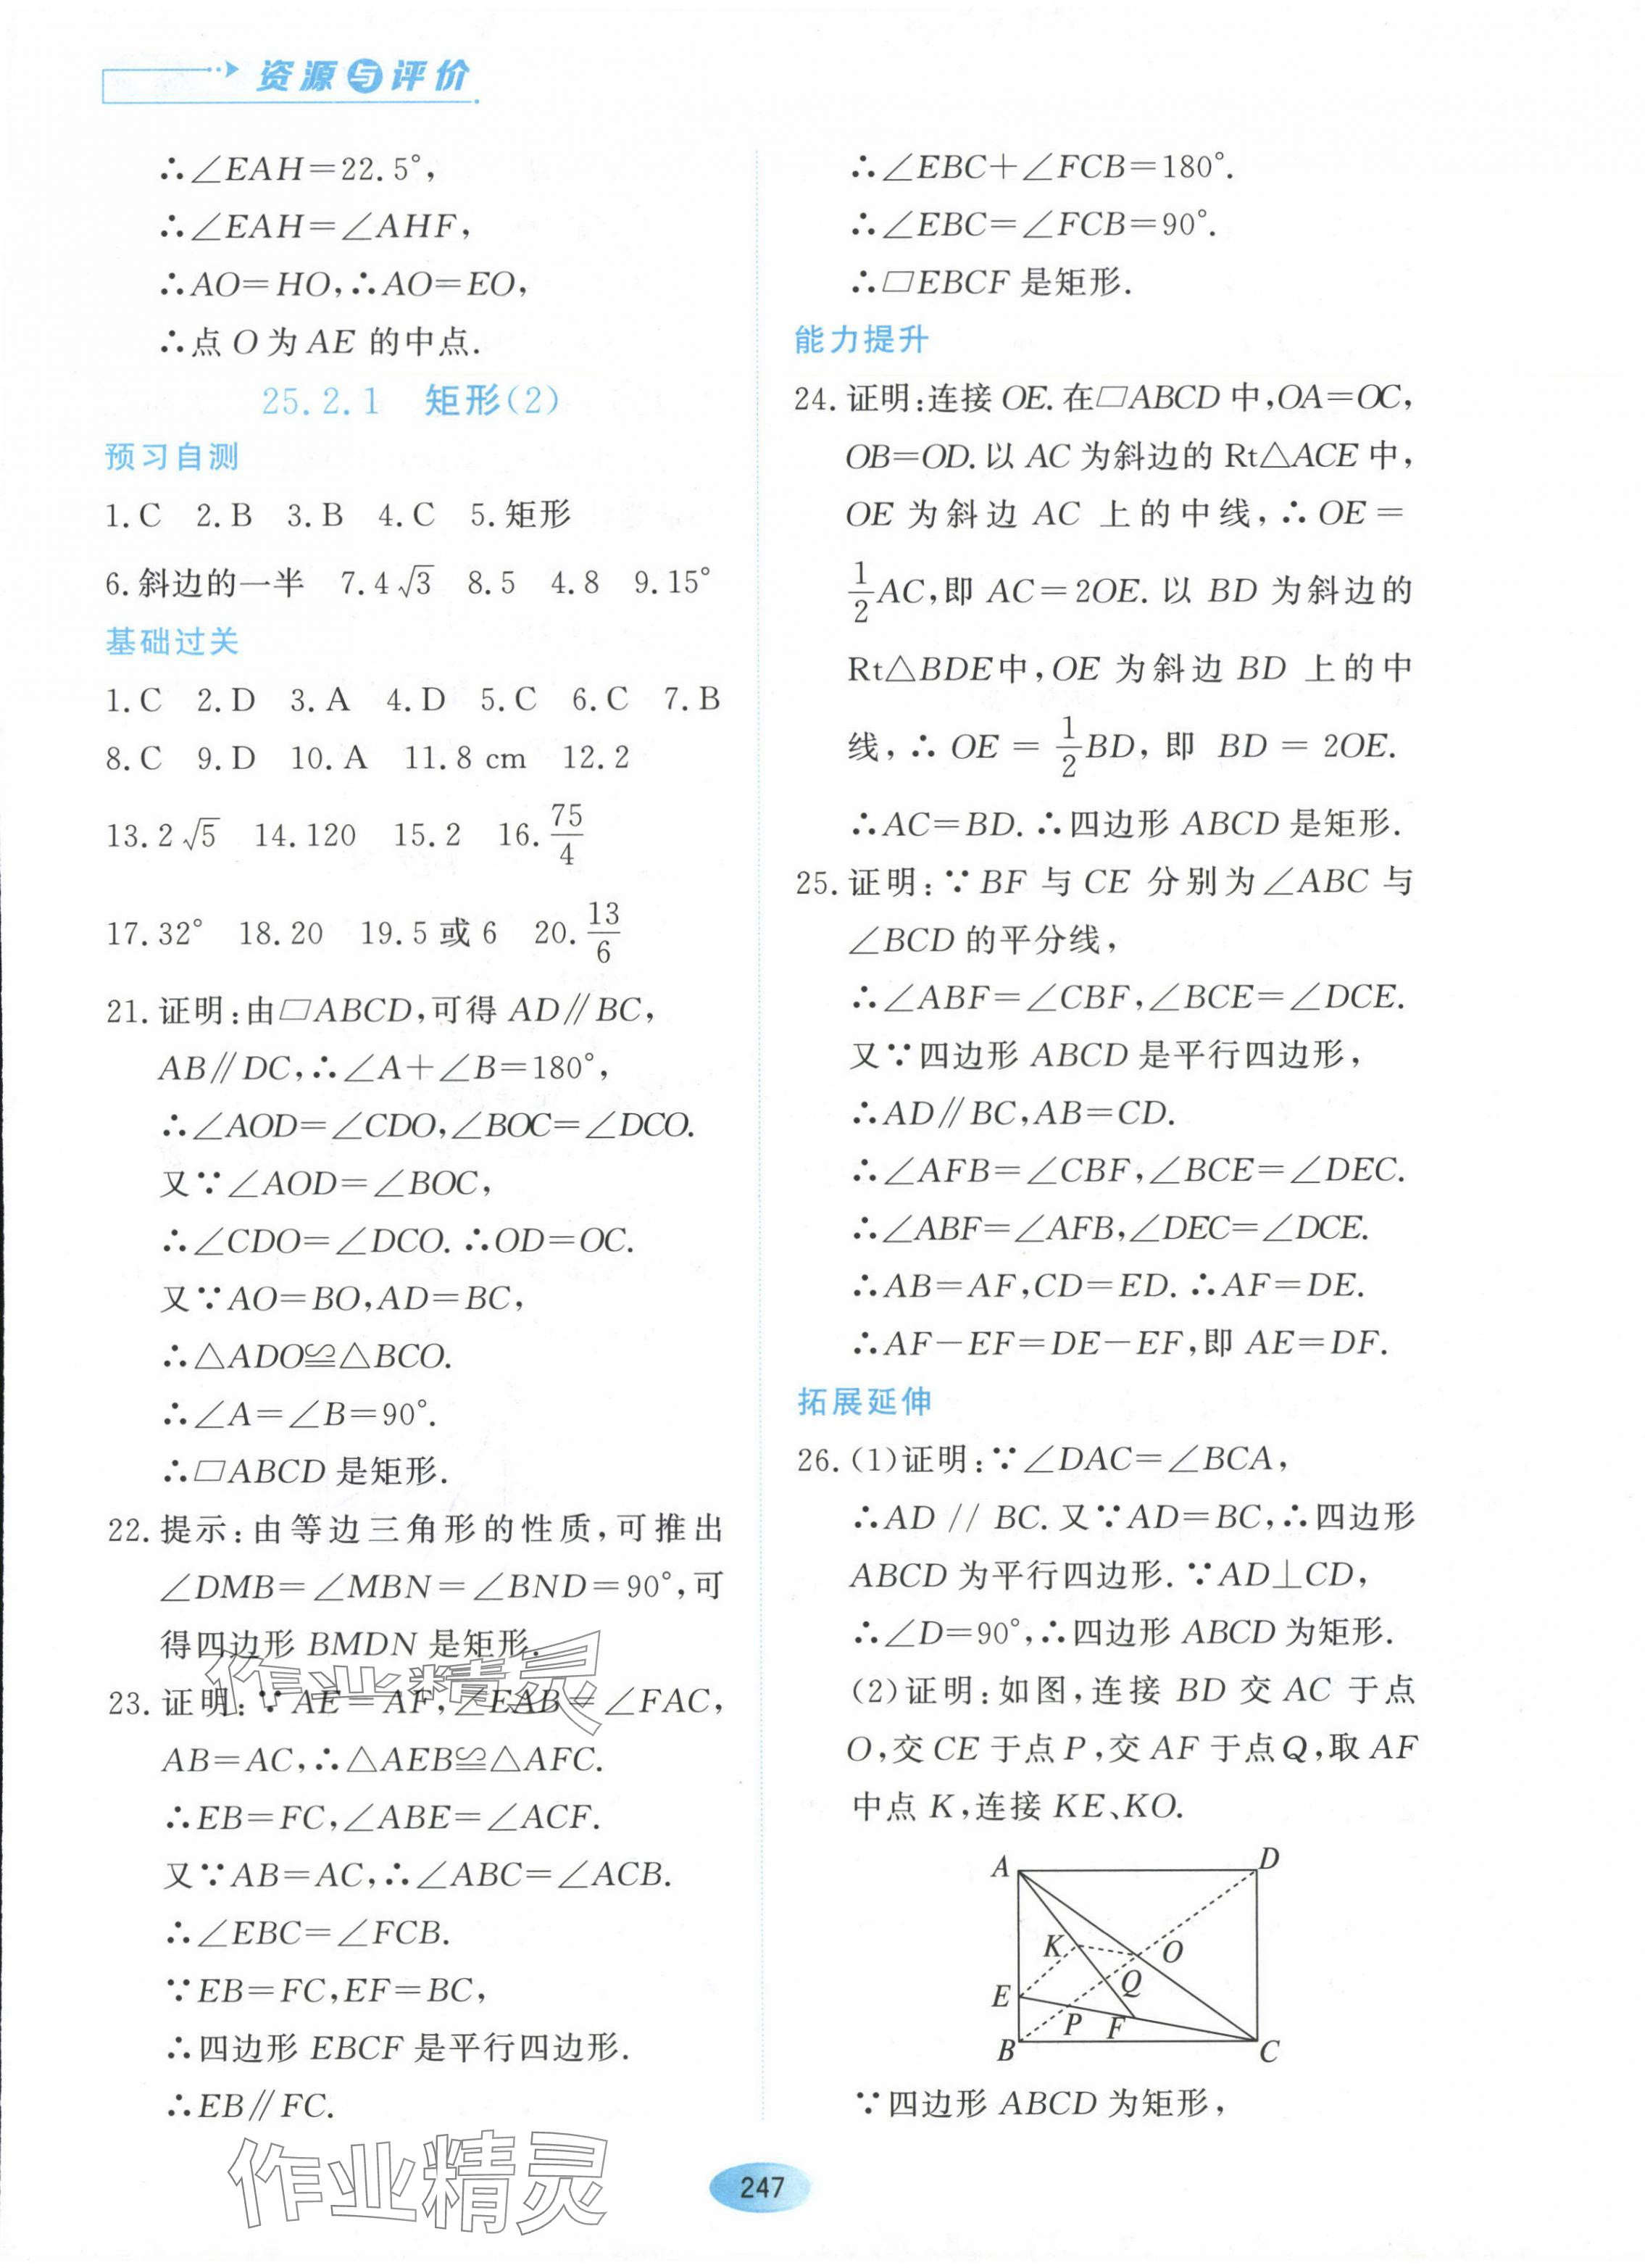 资源与评价
∴∠EAH=22.5°,
∴∠EAH=∠AHF,
∴AO=HO,∴AO=EO,
∴点O为AE的中点.
25.2.1 矩形(2)
预习自测
1.C 2.B 3.B 4.C 5.矩形
6.斜边的一半 7.4√3 8.5 4.8 9.15°
基础过关
1.C 2.D 3.A 4.D 5.C 6.C 7.B
8.C 9.D 10.A 11.8 cm 12.2
13.2√5 14.120 15.2 16.75/4
17.32° 18.20 19.5或6 20.13/6
21.证明:由▱ABCD,可得AD∥BC,
AB∥DC,∴∠A+∠B=180°,
∴∠AOD=∠CDO,∠BOC=∠DCO.
又∵∠AOD=∠BOC,
∴∠CDO=∠DCO.∴OD=OC.
又∵AO=BO,AD=BC,
∴△ADO≌△BCO.
∴∠A=∠B=90°.
∴▱ABCD是矩形.
22.提示:由等边三角形的性质,可推出
∠DMB=∠MBN=∠BND=90°,可
得四边形BMDN是矩形.
23.证明:∵AE=AF,∠EAB=∠FAC,
AB=AC,∴△AEB≌△AFC.
∴EB=FC,∠ABE=∠ACF.
又∵AB=AC,∴∠ABC=∠ACB.
∴∠EBC=∠FCB.
∵EB=FC,EF=BC,
∴四边形EBCF是平行四边形.
∴EB∥FC.
∴∠EBC+∠FCB=180°.
∴∠EBC=∠FCB=90°.
∴▱EBCF是矩形.
能力提升
24.证明:连接OE.在▱ABCD中,OA=OC,
OB=OD.以AC为斜边的Rt△ACE中,
OE为斜边AC上的中线,∴OE=
1/2AC,即AC=2OE.以BD为斜边的
Rt△BDE中,OE为斜边BD上的中
线,∴OE=1/2BD,即BD=2OE.
∴AC=BD.∴四边形ABCD是矩形.
25.证明:∵BF与CE分别为∠ABC与
∠BCD的平分线,
∴∠ABF=∠CBF,∠BCE=∠DCE.
又∵四边形ABCD是平行四边形,
∴AD∥BC,AB=CD.
∴∠AFB=∠CBF,∠BCE=∠DEC.
∴∠ABF=∠AFB,∠DEC=∠DCE.
∴AB=AF,CD=ED.∴AF=DE.
∴AF-EF=DE-EF,即AE=DF.
拓展延伸
26.(1)证明:∵∠DAC=∠BCA,
∴AD∥BC.又∵AD=BC,∴四边形
ABCD为平行四边形.∵AD⊥CD,
∴∠D=90°,∴四边形ABCD为矩形.
(2)证明:如图,连接BD交AC于点
O,交CE于点P,交AF于点Q,取AF
中点K,连接KE、KO.
A D
K O
Q
E
P F
B C
∵四边形ABCD为矩形,
作业精灵
作业精灵
247